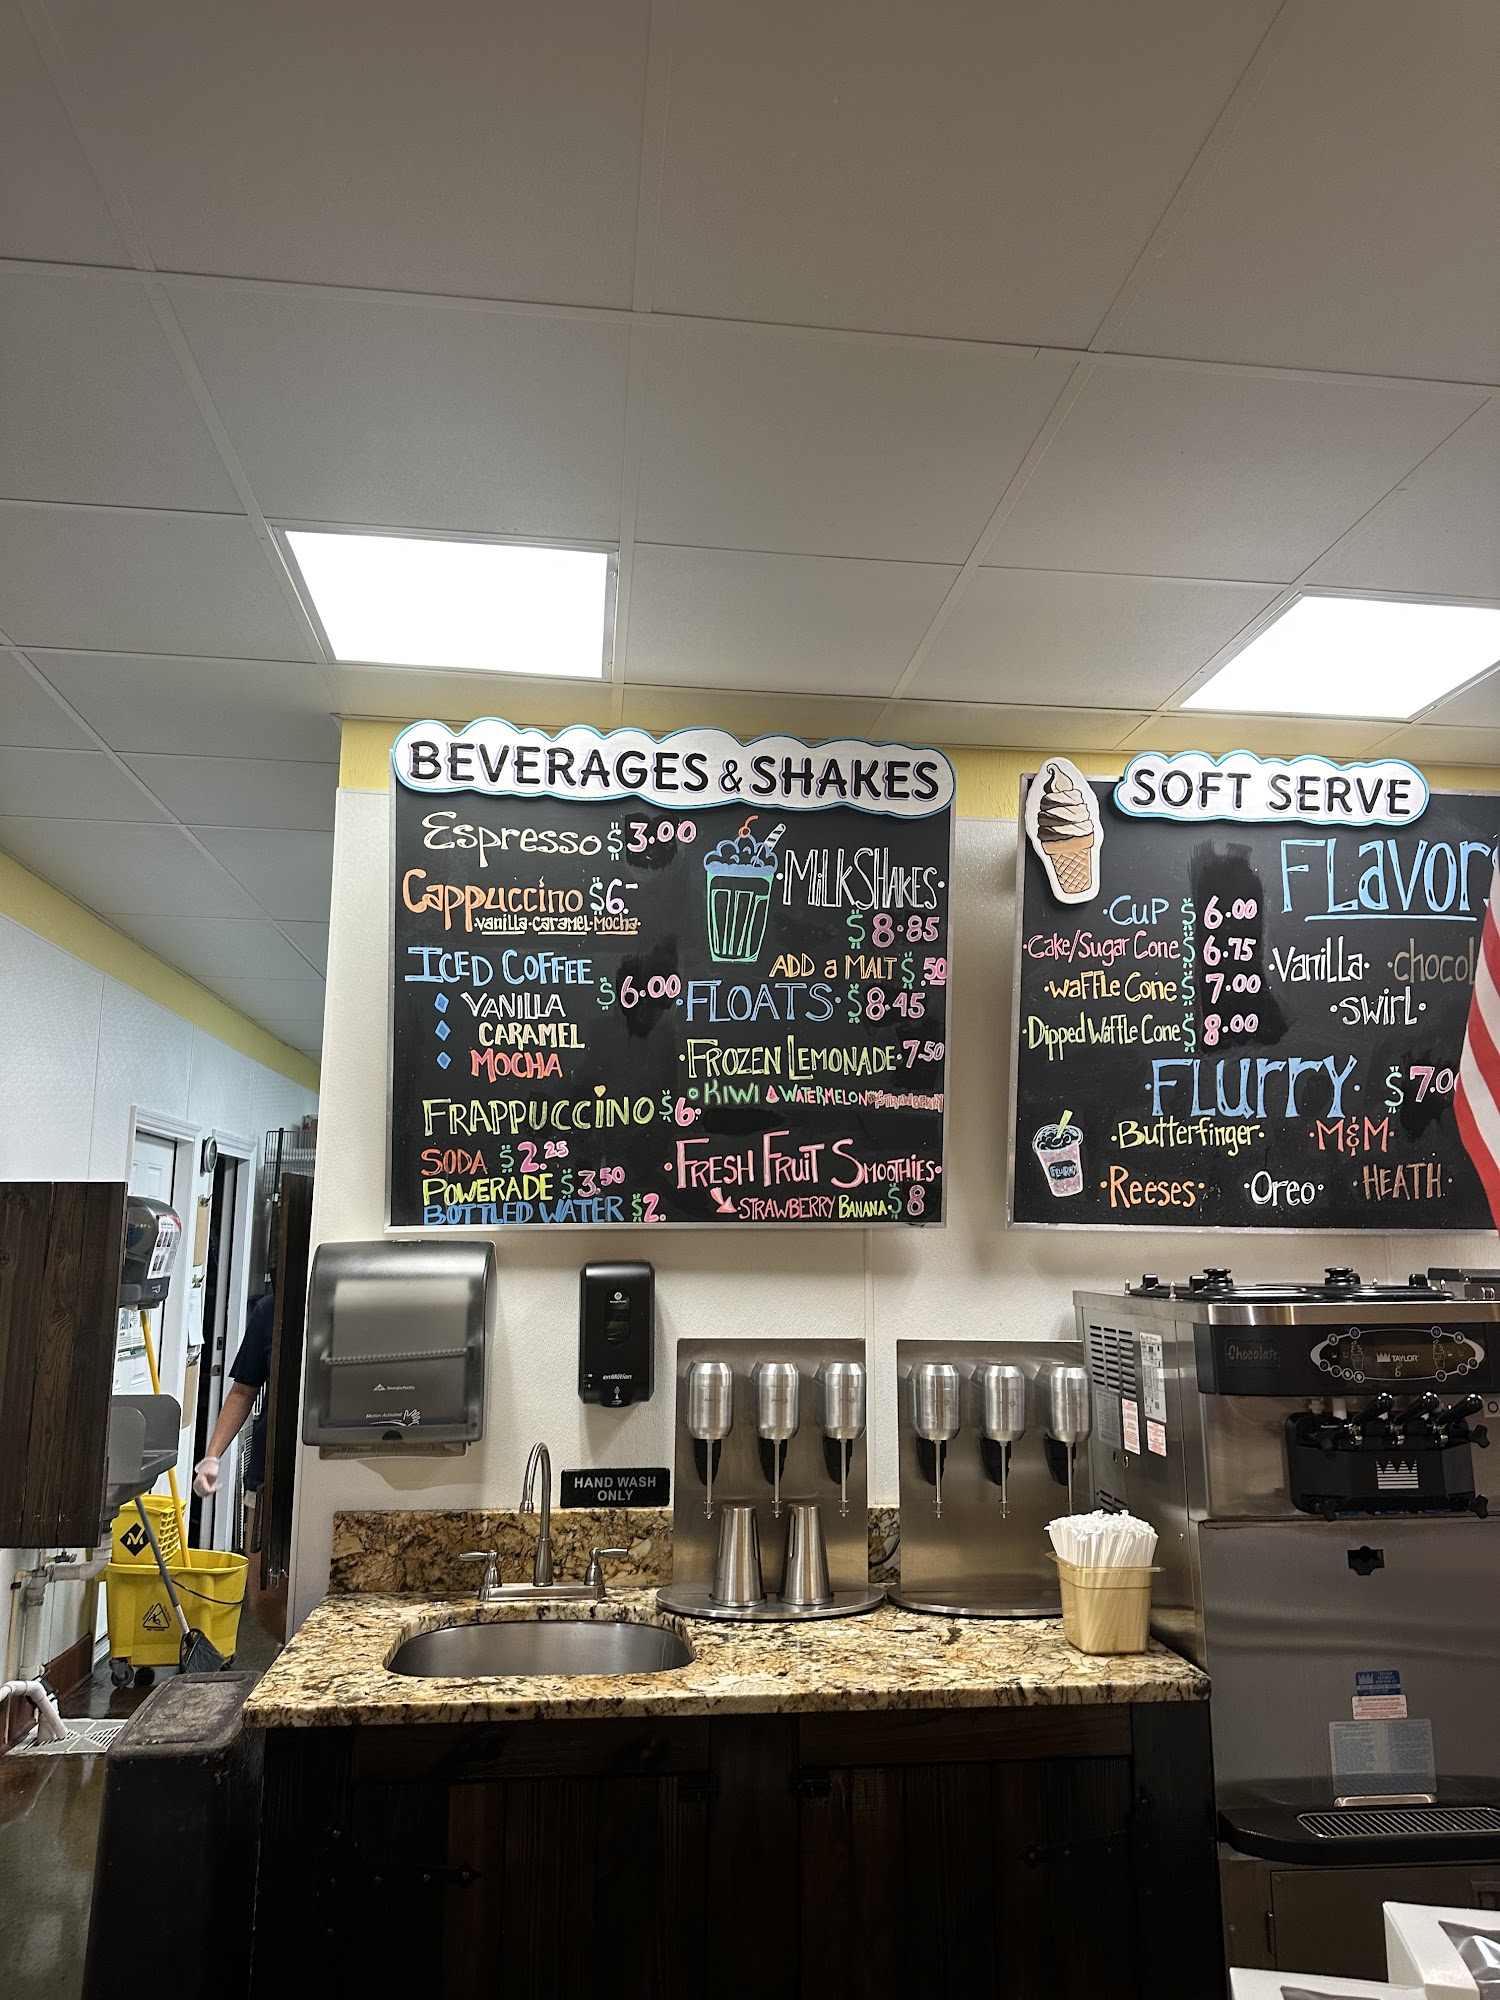 BEVERAGES & SHAKES
Espresso $3.00
Cappuccino $6.-
vanilla·caramel·Mocha·
ICED COFFEE $6.00
VANILLA
CARAMEL
MOCHA
FRAPPUCCiNO $6.
SODA $2.25
POWERADE $3.50
BOTTLED WATER $2.
·MiLKSHAKES·
$8.85
ADD a MALT $.50
·FLOATS· $8.45
·FROZEN LEMONADE·7.50
KIWI WATERMELON STRAWBERRY
·FRESH FRUIT SMOOTHIES·
·STRAWBERRY BANANA·$8
SOFT SERVE
·CUP $6.00
·Cake/Sugar Cone $6.75
·WaFFLe Cone $7.00
·Dipped Waffle Cone $8.00
FLavors
·Vanilla· ·chocol
·swirl·
·FLurry· $7.0
·Butterfinger· ·M&M·
·Reeses· ·Oreo· ·HEATH·
FLURRY
Georgia-Pacific
Motion Activated
enMotion
HAND WASH
ONLY
Chocolate
TAYLOR
6
M